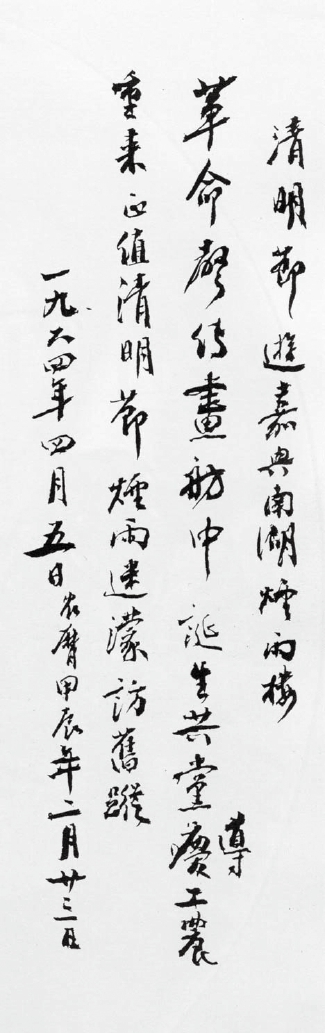 清明節遊嘉興南湖煙雨樓
革命聲傳畫舫中誕生共黨慶工農
導
重來正值清明節煙雨迷濛訪舊蹤
一九六四年四月五日农曆甲辰年二月廿三日